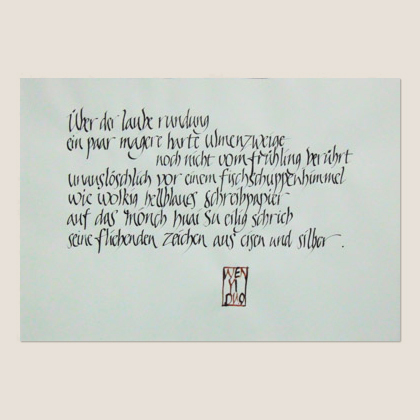 Über der laube rundung
ein paar magere harte Ulmenzweige
noch nicht vom frühling berührt
unauslöschlich vor einem fischschuppenhimmel
wie wolkig hellblaues schreibpapier
auf das Mönch Huai Su eilig schrieb
seine fliehenden zeichen aus eisen und silber.
WEN
YI
DUO